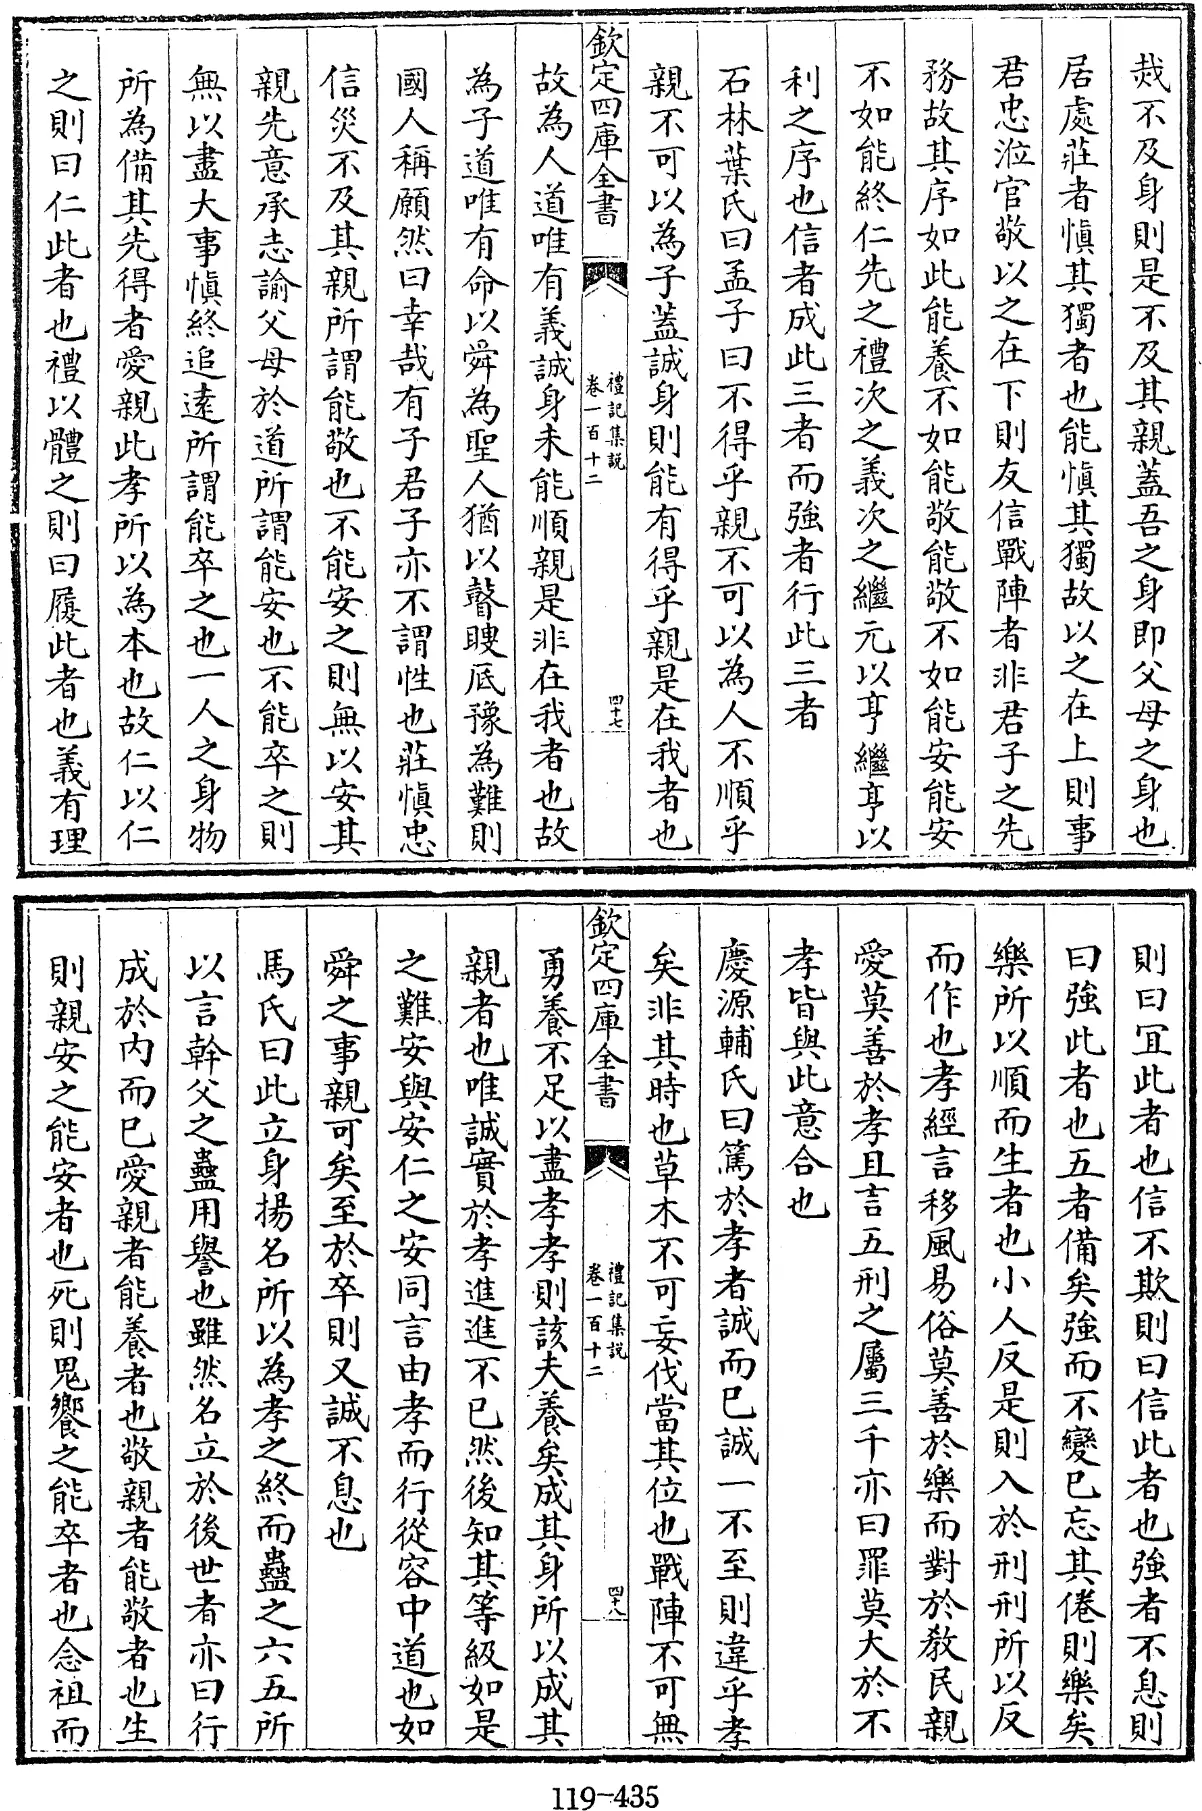 烖不及身則是不及其親蓋吾之身即父母之身也
居處莊者慎其獨者也能慎其獨故以之在上則事
君忠涖官敬以之在下則友信戰陣者非君子之先
務故其序如此能養不如能敬能敬不如能安能安
不如能終仁先之禮次之義次之繼元以亨繼亨以
利之序也信者成此三者而強者行此三者
石林葉氏曰孟子曰不得乎親不可以為人不順乎
親不可以為子蓋誠身則能有得乎親是在我者也
欽定四庫全書
禮記集說
卷一百十二
四十七
故為人道唯有義誠身未能順親是非在我者也故
為子道唯有命以舜為聖人猶以瞽瞍厎豫為難則
國人稱願然曰幸哉有子君子亦不謂性也莊慎忠
信災不及其親所謂能敬也不能安之則無以安其
親先意承志諭父母於道所謂能安也不能卒之則
無以盡大事慎終追逺所謂能卒之也一人之身物
所為備其先得者愛親此孝所以為本也故仁以仁
之則曰仁此者也禮以體之則曰履此者也義有理
則曰冝此者也信不欺則曰信此者也強者不息則
曰強此者也五者備矣強而不變已忘其倦則樂矣
樂所以順而生者也小人反是則入於刑刑所以反
而作也孝經言移風易俗莫善於樂而對於敎民親
愛莫善於孝且言五刑之屬三千亦曰罪莫大於不
孝皆與此意合也
慶源輔氏曰篤於孝者誠而已誠一不至則違乎孝
矣非其時也草木不可妄伐當其位也戰陣不可無
欽定四庫全書
禮記集說
卷一百十二
四十八
勇養不足以盡孝孝則該夫養矣成其身所以成其
親者也唯誠實於孝進進不已然後知其等級如是
之難安與安仁之安同言由孝而行從容中道也如
舜之事親可矣至於卒則又誠不息也
馬氏曰此立身揚名所以為孝之終而蠱之六五所
以言幹父之蠱用譽也雖然名立於後世者亦曰行
成於内而已愛親者能養者也敬親者能敬者也生
則親安之能安者也死則鬼饗之能卒者也念祖而
119-435